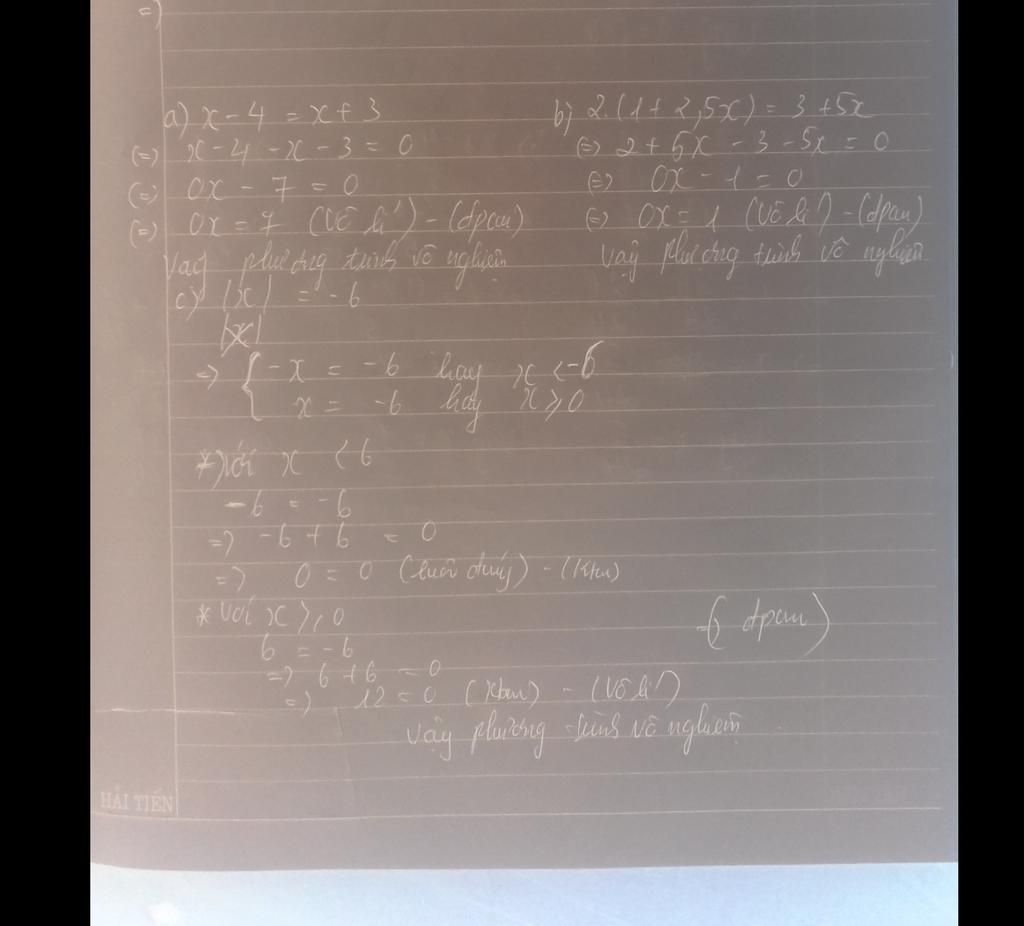 =)
a) x - 4 = x + 3
(=) x - 4 - x - 3 = 0
(=) 0x - 7 = 0
(=) 0x = 7 (Vô lí) - (đpcm)
Vaỹ phương trình vô nghiệm
b) 2.(1 + 2,5x) = 3 + 5x
(=) 2 + 5x - 3 - 5x = 0
(=) 0x - 1 = 0
(=) 0x = 1 (Vô lí) - (đpcm)
Vaỹ phương trình vô nghiệm
c) |x| = -6
|x|
=> { -x = -6 hay x < -6
x = -6 hay x ⩾ 0
*) với x < 6
-6 = -6
=) -6 + 6 = 0
=) 0 = 0 (luôn đúng) - (Ktm)
* Với x ⩾ 0
6 = -6
=) 6 + 6 = 0
=) 12 = 0 (Ktm) - (Vô lí)
-( đpcm )
Vậy phương trình vô nghiệm
HẢI TIẾN